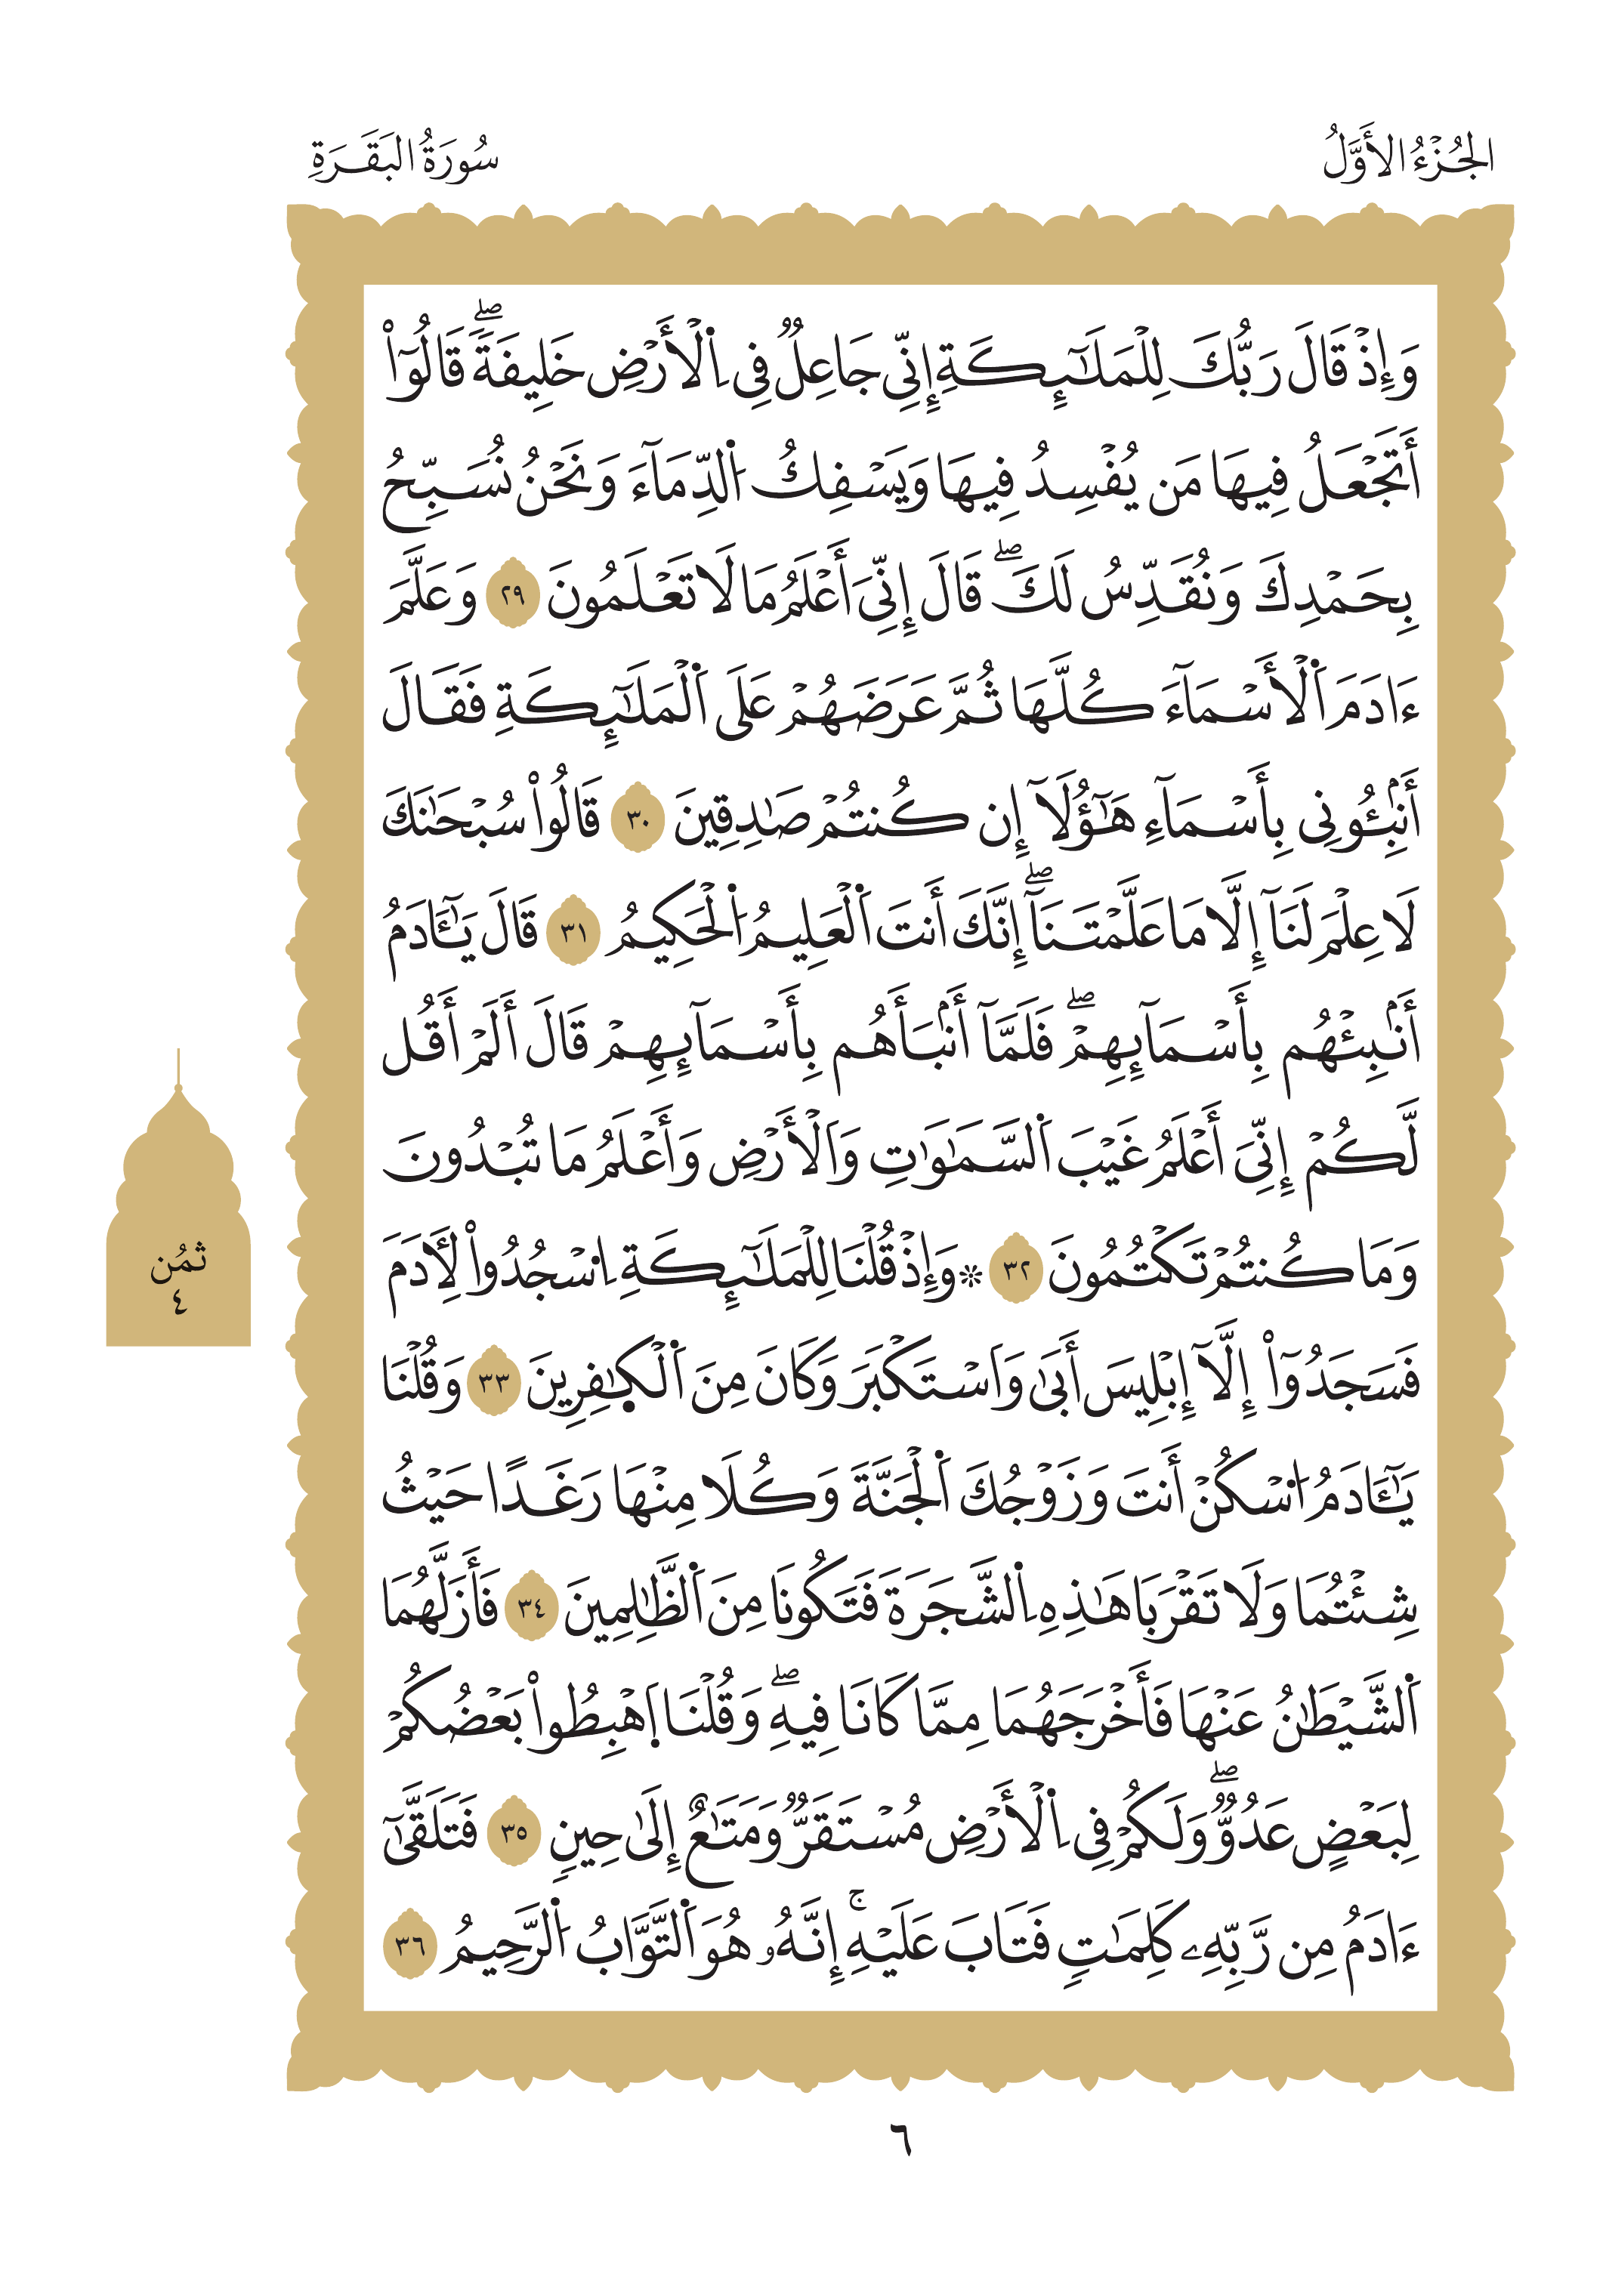 الجُزْءُ الأَوَّلُ
سُورَةُ البَقَرَةِ
وَإِذْ قَالَ رَبُّكَ لِلْمَلَٰٓئِكَةِ إِنِّي جَاعِلٞ فِي اِ۬لْأَرْضِ خَلِيفَةٗۖ قَالُوٓاْ
أَتَجْعَلُ فِيهَا مَن يُفْسِدُ فِيهَا وَيَسْفِكُ اُ۬لدِّمَآءَ وَنَحْنُ نُسَبِّحُ
بِحَمْدِكَ وَنُقَدِّسُ لَكَۖ قَالَ إِنِّيَ أَعْلَمُ مَا لَا تَعْلَمُونَ ٢٩ وَعَلَّمَ
ءَادَمَ اَ۬لْأَسْمَآءَ كُلَّهَا ثُمَّ عَرَضَهُمْ عَلَى اَ۬لْمَلَٰٓئِكَةِ فَقَالَ
أَنۢبِـُٔونِي بِأَسْمَآءِ هَٰٓؤُلَآ إِن كُنتُمْ صَٰدِقِينَ ٣٠ قَالُواْ سُبْحَٰنَكَ
لَا عِلْمَ لَنَآ إِلَّا مَا عَلَّمْتَنَآۖ إِنَّكَ أَنتَ اَ۬لْعَلِيمُ اُ۬لْحَكِيمُ ٣١ قَالَ يَٰٓـَٔادَمُ
أَنۢبِئْهُم بِأَسْمَآئِهِمْۖ فَلَمَّآ أَنۢبَأَهُم بِأَسْمَآئِهِمْ قَالَ أَلَمْ أَقُل
لَّكُمْ إِنِّيَ أَعْلَمُ غَيْبَ اَ۬لسَّمَٰوَٰتِ وَالْأَرْضِ وَأَعْلَمُ مَا تُبْدُونَ
وَمَا كُنتُمْ تَكْتُمُونَ ٣٢ ۞وَإِذْ قُلْنَا لِلْمَلَٰٓئِكَةِ اِ۟سْجُدُواْ لِأٓدَمَ
فَسَجَدُوٓاْ إِلَّآ إِبْلِيسَ أَبَىٰ وَاَسْتَكْبَرَ وَكَانَ مِنَ اَ۬لْكٰٜفِرِينَ ٣٣ وَقُلْنَا
يَٰٓـَٔادَمُ اُ۟سْكُنْ أَنتَ وَزَوْجُكَ اَ۬لْجَنَّةَ وَكُلَا مِنْهَا رَغَدًا حَيْثُ
شِئْتُمَا وَلَا تَقْرَبَا هَٰذِهِ اِ۬لشَّجَرَةَ فَتَكُونَا مِنَ اَ۬لظَّٰلِمِينَ ٣٤ فَأَزَلَّهُمَا
اَ۬لشَّيْطَٰنُ عَنْهَا فَأَخْرَجَهُمَا مِمَّا كَانَا فِيهِۖ وَقُلْنَا اَ۪هْبِطُواْ بَعْضُكُمْ
لِبَعْضٍ عَدُوّٞۖ وَلَكُمْ فِي اِ۬لْأَرْضِ مُسْتَقَرّٞ وَمَتَٰعٌ إِلَىٰ حِينٖ ٣٥ فَتَلَقَّىٰٓ
ءَادَمُ مِن رَّبِّهِۦ كَلِمَٰتٖ فَتَابَ عَلَيْهِۚ إِنَّهُۥ هُوَ اَ۬لتَّوَّابُ اُ۬لرَّحِيمُ ٣٦
ثمُن
٤
٦